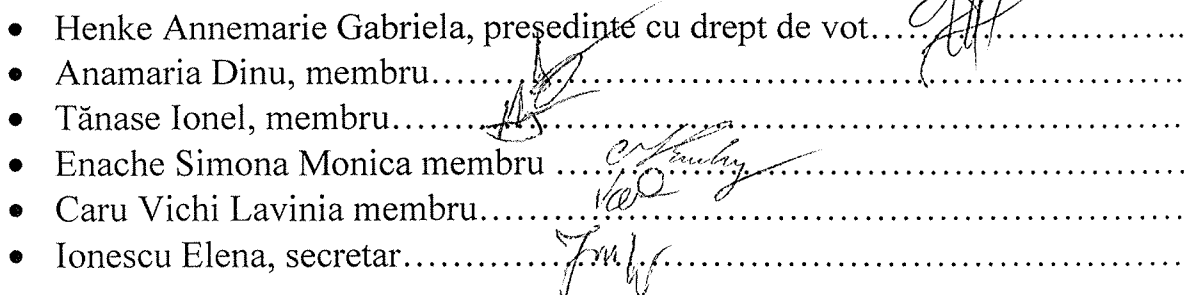 • Henke Annemarie Gabriela, președinte cu drept de vot……………………………..
• Anamaria Dinu, membru……………………………………………………………….
• Tănase Ionel, membru…………………………………………………………………….
• Enache Simona Monica membru ……………………………………………………….
• Caru Vichi Lavinia membru…………………………………………………………….
• Ionescu Elena, secretar…………………………………………………………………….